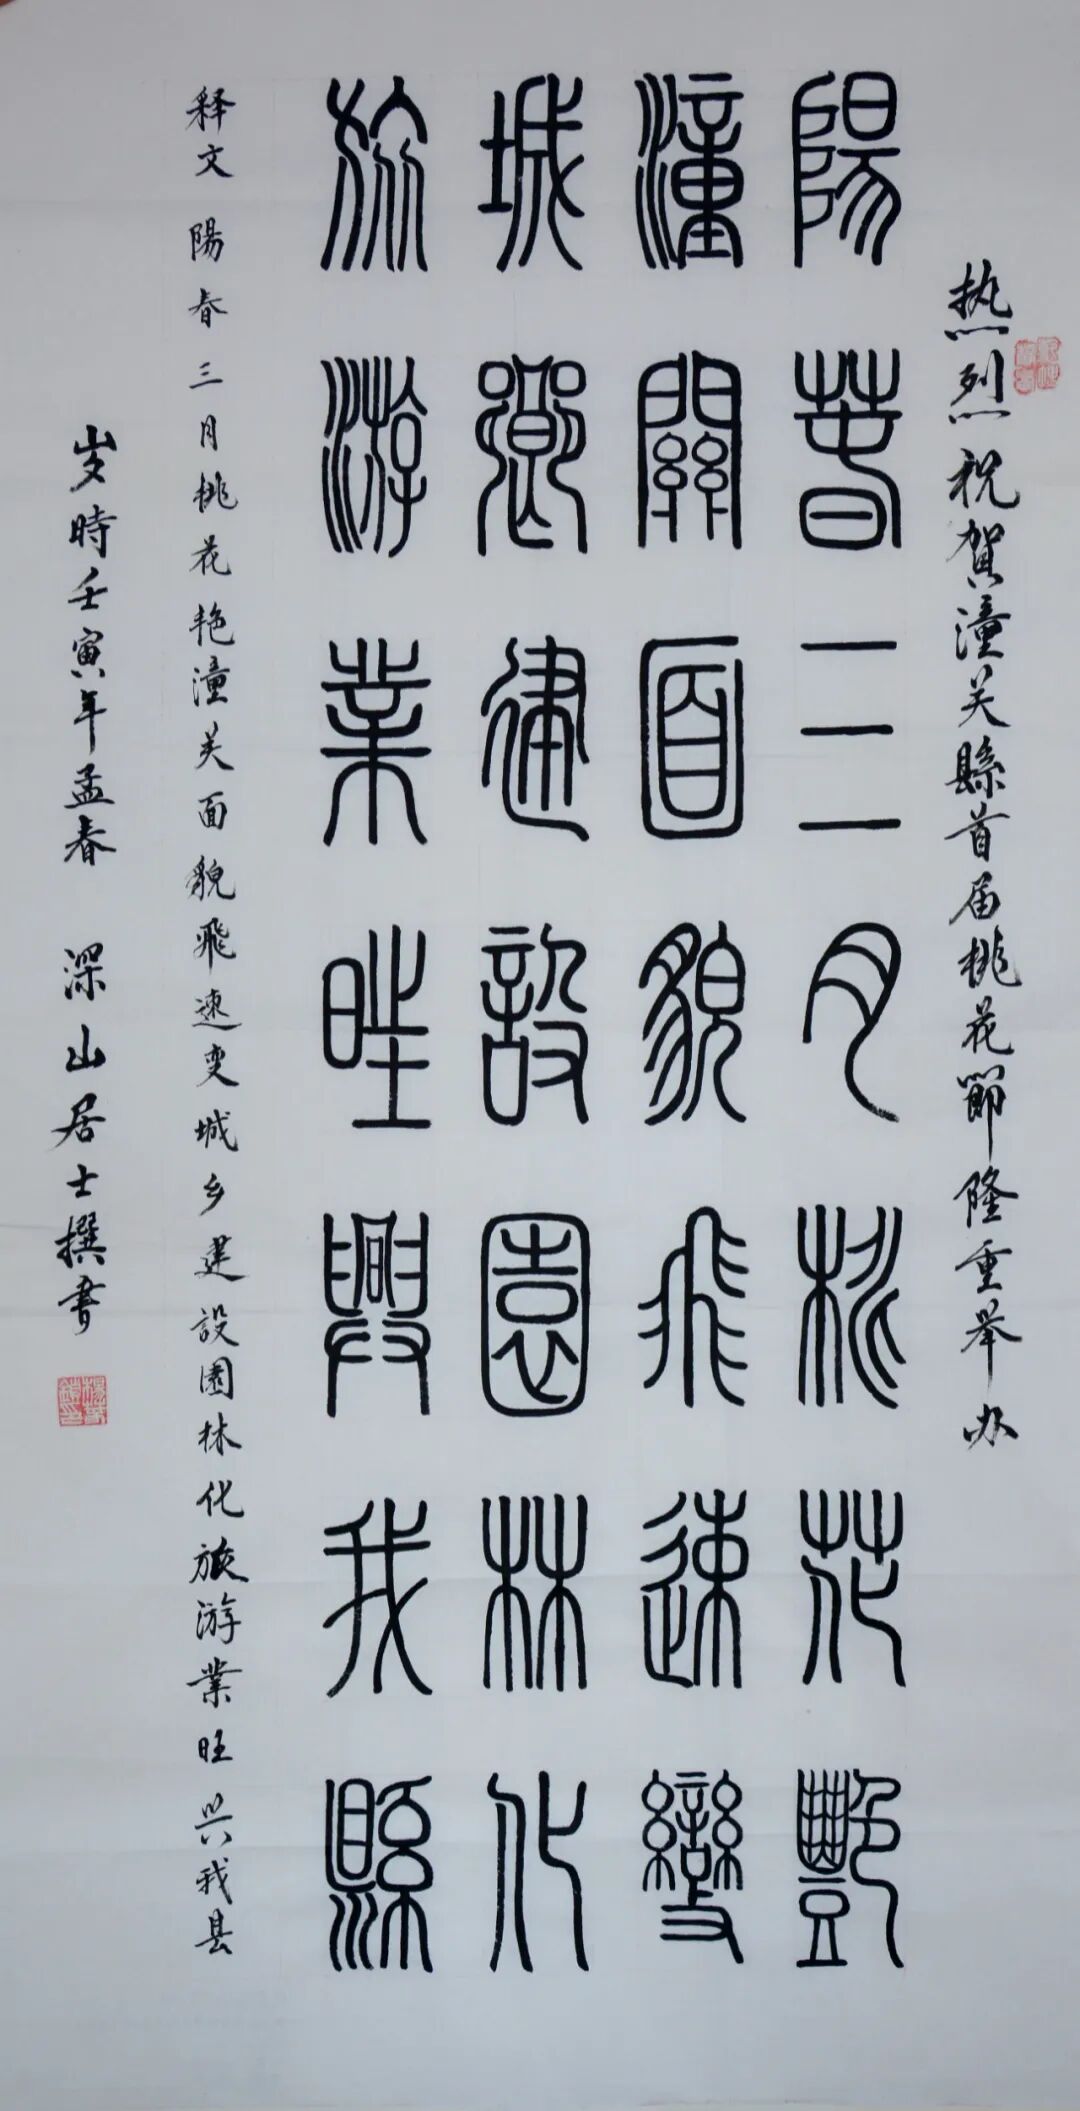 热烈祝贺潼关縣首届桃花節隆重举办
陽春三月桃花艷
潼關面貌飛速變
城鄉建設園林化
旅游業旺興我縣
释文 陽春三月桃花艳潼关面貌飛速变城乡建設園林化旅游業旺兴我县
岁時壬寅年孟春 深山居士撰書